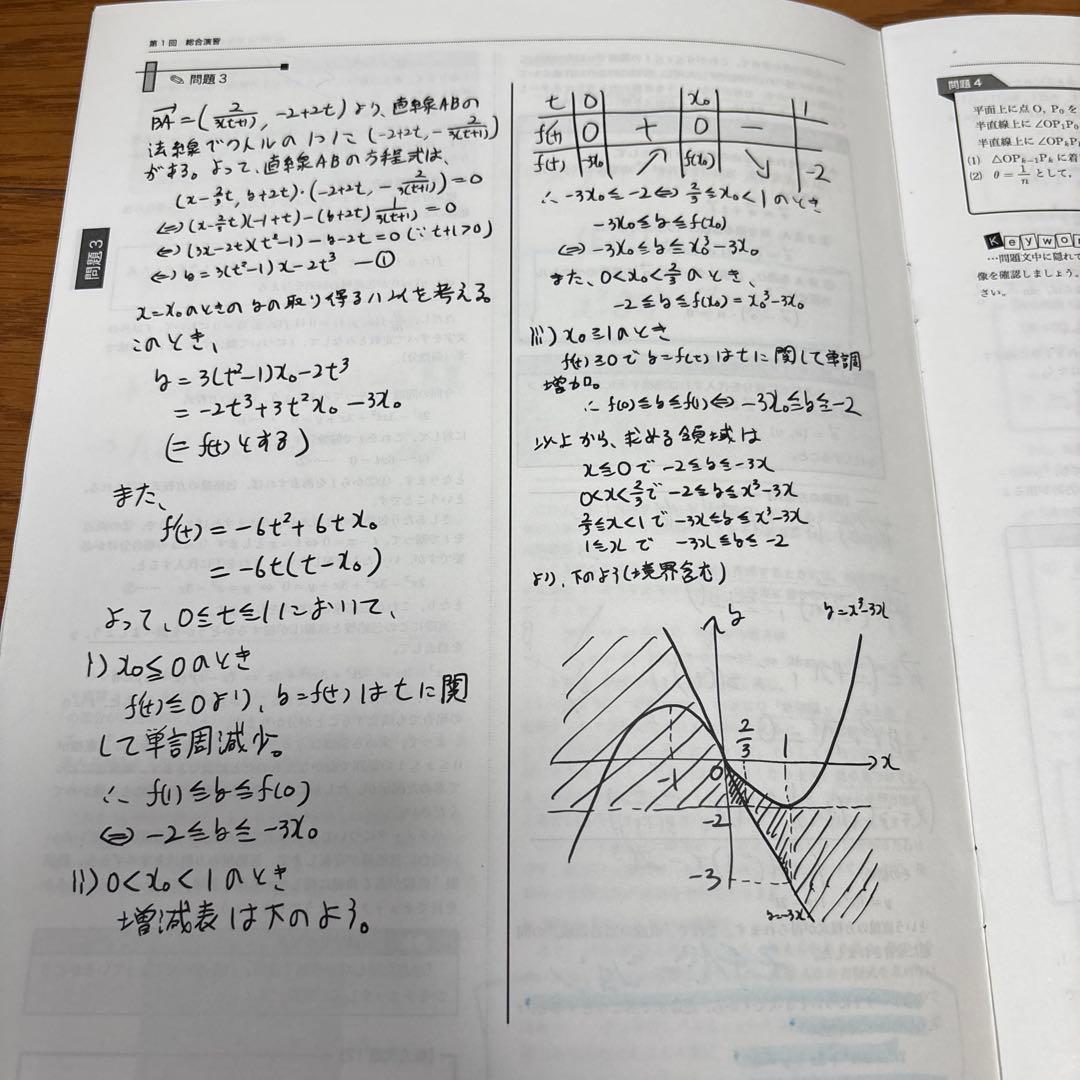 第1回 総合演習
問題3
問題3
BA→ = (2/3(t+1), -2+2t) より、直線ABの
法線ベクトルの1つに (-2+2t, -2/3(t+1))
がある。よって、直線ABの方程式は、
(x-2/3t, y+2t)・(-2+2t, -2/3(t+1)) = 0
⇔ (x-2/3t)(-1+t)-(y+2t) 1/3(t+1) = 0
⇔ (3x-2t)(t²-1)-y-2t=0 (∵ t+1>0)
⇔ y=3(t²-1)x-2t³ ―①
x=x₀のときのyの取り得るハンイを考える。
このとき、
y=3(t²-1)x₀-2t³
=-2t³+3t²x₀-3x₀
(=f(t)とする)
また、
f'(t)=-6t²+6tx₀
=-6t(t-x₀)
よって、0≦t≦1において、
i) x₀≦0のとき
f'(t)≦0より、y=f(t)はtに関
して単調減少。
∴ f(1)≦y≦f(0)
⇔ -2≦y≦-3x₀
ii) 0<x₀<1のとき
増減表は下のよう。
t 0 x₀ 1
f'(t) 0 + 0 -
f(t) -3x₀ ↗ f(x₀) ↘ -2
∴ -3x₀≦-2⇔2/3≦x₀<1のとき
-3x₀≦y≦f(x₀)
⇔ -3x₀≦y≦x₀³-3x₀
また、0<x₀<2/3のとき、
-2≦y≦f(x₀)=x₀³-3x₀
iii) x₀≧1のとき
f'(t)≧0でy=f(t)はtに関して単調
増加。
∴ f(0)≦y≦f(1)⇔-3x₀≦y≦-2
以上から、求める領域は
x≦0で -2≦y≦-3x
0<x<2/3で -2≦y≦x³-3x
2/3≦x<1で -3x≦y≦x³-3x
1≦xで -3x≦y≦-2
より、下のよう(境界含む)
y
y=x³-3x
2/3
1
x
0
-1
-2
-3
y=-3x
問題4
平面上に点O, P₀を
半直線上に∠OP₁P₀
半直線上に∠OPₖP
(1) △OPₖ₋₁Pₖに着
(2) θ=1/nとして,
Keywor
…問題文中に隠れて
像を確認しましょう。
さい。